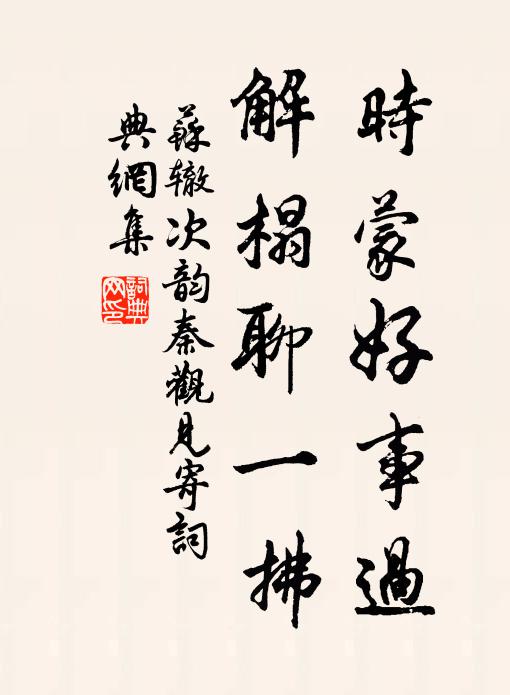 時蒙好事過
解榻聊一拂
蘇辙次韵秦觀見寄詞
典網集
詞典
网印